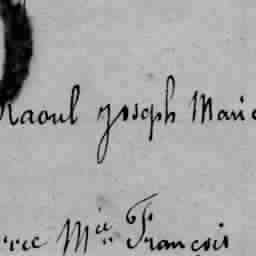 Raoul Joseph Marie
Mie François